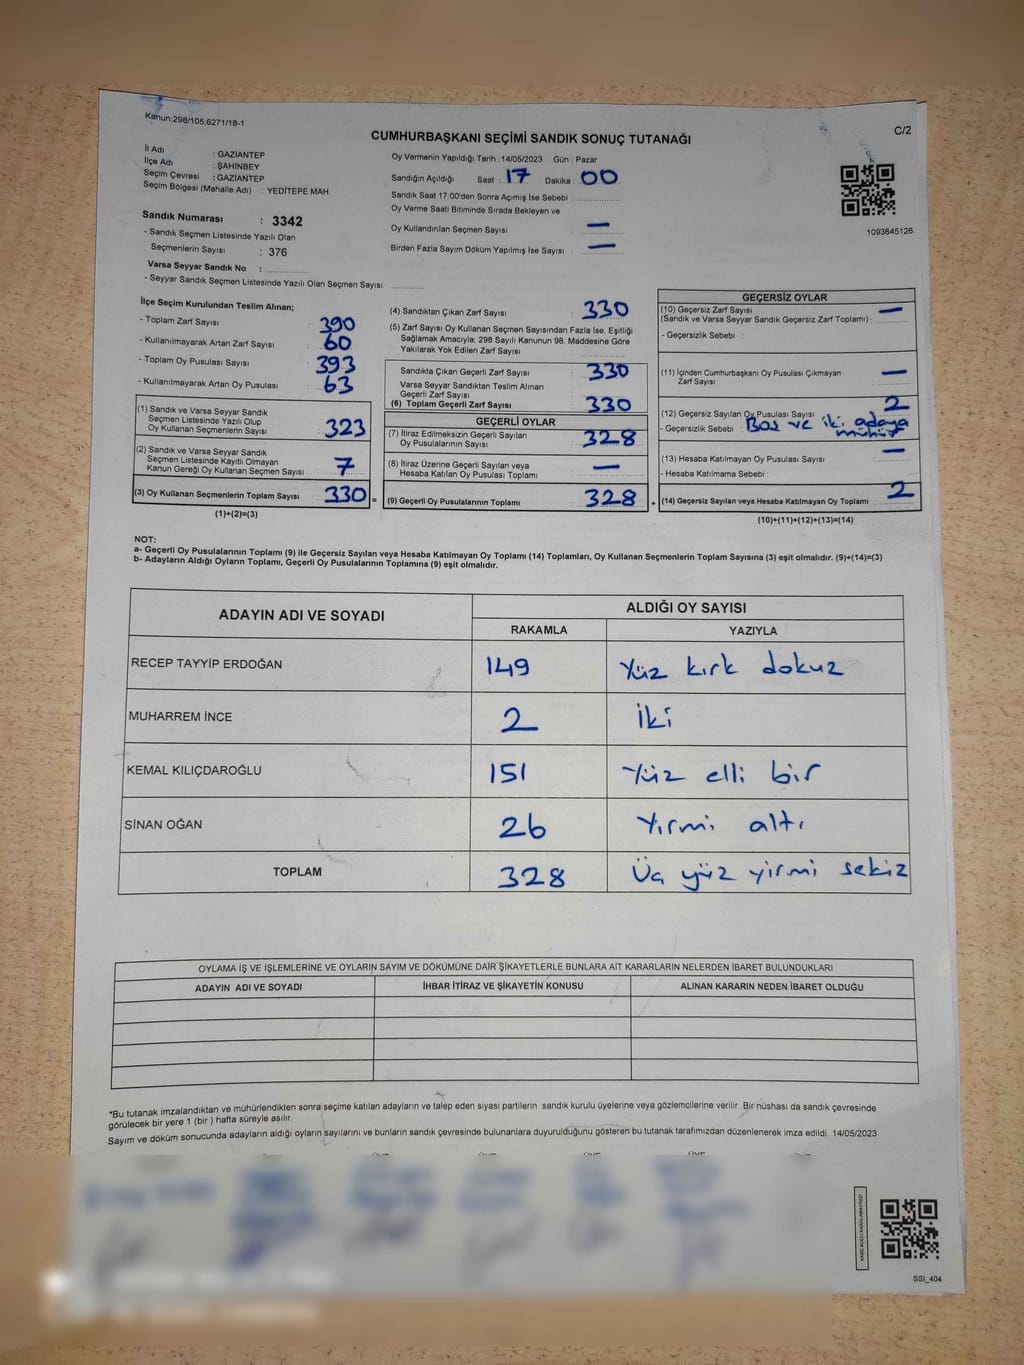 Kanun:298/105;6271/18-1
C/2
CUMHURBAŞKANI SEÇİMİ SANDIK SONUÇ TUTANAĞI
İl Adı : GAZİANTEP
İlçe Adı : ŞAHİNBEY
Seçim Çevresi : GAZİANTEP
Seçim Bölgesi (Mahalle Adı) : YEDİTEPE MAH.
Sandık Numarası : 3342
- Sandık Seçmen Listesinde Yazılı Olan
Seçmenlerin Sayısı : 376
Varsa Seyyar Sandık No :
- Seyyar Sandık Seçmen Listesinde Yazılı Olan Seçmen Sayısı:
Oy Vermenin Yapıldığı Tarih : 14/05/2023 Gün : Pazar
Sandığın Açıldığı Saat : 17 Dakika : 00
Sandık Saat 17:00'den Sonra Açımış İse Sebebi :
Oy Verme Saati Bitiminde Sırada Bekleyen ve
Oy Kullandırılan Seçmen Sayısı : —
Birden Fazla Sayım Döküm Yapılmış İse Sayısı : —
1093645126
İlçe Seçim Kurulundan Teslim Alınan;
- Toplam Zarf Sayısı : 390
- Kullanılmayarak Artan Zarf Sayısı : 60
- Toplam Oy Pusulası Sayısı : 393
- Kullanılmayarak Artan Oy Pusulası : 63
(1) Sandık ve Varsa Seyyar Sandık
Seçmen Listesinde Yazılı Olup
Oy Kullanan Seçmenlerin Sayısı : 323
(2) Sandık ve Varsa Seyyar Sandık
Seçmen Listesinde Kayıtlı Olmayan
Kanun Gereği Oy Kullanan Seçmen Sayısı : 7
(3) Oy Kullanan Seçmenlerin Toplam Sayısı : 330 =
(1)+(2)=(3)
(4) Sandıktan Çıkan Zarf Sayısı : 330
(5) Zarf Sayısı Oy Kullanan Seçmen Sayısından Fazla İse, Eşitliği
Sağlamak Amacıyla; 298 Sayılı Kanunun 98. Maddesine Göre
Yakılarak Yok Edilen Zarf Sayısı :
Sandıkta Çıkan Geçerli Zarf Sayısı : 330
Varsa Seyyar Sandıktan Teslim Alınan
Geçerli Zarf Sayısı :
(6) Toplam Geçerli Zarf Sayısı : 330
GEÇERLİ OYLAR
(7) İtiraz Edilmeksizin Geçerli Sayılan
Oy Pusulalarının Sayısı : 328
(8) İtiraz Üzerine Geçerli Sayılan veya
Hesaba Katılan Oy Pusulası Toplamı : —
(9) Geçerli Oy Pusulalarının Toplamı : 328 +
GEÇERSİZ OYLAR
(10) Geçersiz Zarf Sayısı —
(Sandık ve Varsa Seyyar Sandık Geçersiz Zarf Toplamı) :
- Geçersizlik Sebebi :
(11) İçinden Cumhurbaşkanı Oy Pusulası Çıkmayan —
Zarf Sayısı :
(12) Geçersiz Sayılan Oy Pusulası Sayısı : 2
- Geçersizlik Sebebi : Boş ve iki adaya
mühür
(13) Hesaba Katılmayan Oy Pusulası Sayısı : —
- Hesaba Katılmama Sebebi :
(14) Geçersiz Sayılan veya Hesaba Katılmayan Oy Toplamı : 2
(10)+(11)+(12)+(13)=(14)
NOT:
a- Geçerli Oy Pusulalarının Toplamı (9) ile Geçersiz Sayılan veya Hesaba Katılmayan Oy Toplamı (14) Toplamları, Oy Kullanan Seçmenlerin Toplam Sayısına (3) eşit olmalıdır. (9)+(14)=(3)
b- Adayların Aldığı Oyların Toplamı, Geçerli Oy Pusulalarının Toplamına (9) eşit olmalıdır.
ADAYIN ADI VE SOYADI ALDIĞI OY SAYISI
RAKAMLA YAZIYLA
RECEP TAYYİP ERDOĞAN 149 Yüz kırk dokuz
MUHARREM İNCE 2 İki
KEMAL KILIÇDAROĞLU 151 Yüz elli bir
SİNAN OĞAN 26 Yirmi altı
TOPLAM 328 Üç yüz yirmi sekiz
OYLAMA İŞ VE İŞLEMLERİNE VE OYLARIN SAYIM VE DÖKÜMÜNE DAİR ŞİKAYETLERLE BUNLARA AİT KARARLARIN NELERDEN İBARET BULUNDUKLARI
ADAYIN ADI VE SOYADI İHBAR İTİRAZ VE ŞİKAYETİN KONUSU ALINAN KARARIN NEDEN İBARET OLDUĞU
*Bu tutanak imzalandıktan ve mühürlendikten sonra seçime katılan adayların ve talep eden siyasi partilerin sandık kurulu üyelerine veya gözlemcilerine verilir. Bir nüshası da sandık çevresinde
görülecek bir yere 1 (bir ) hafta süreyle asılır.
Sayım ve döküm sonucunda adayların aldığı oyların sayılarını ve bunların sandık çevresinde bulunanlara duyurulduğunu gösteren bu tutanak tarafımızdan düzenlenerek imza edildi. 14/05/2023
KARE KODU KARALAMAYINIZ!
SSI_404